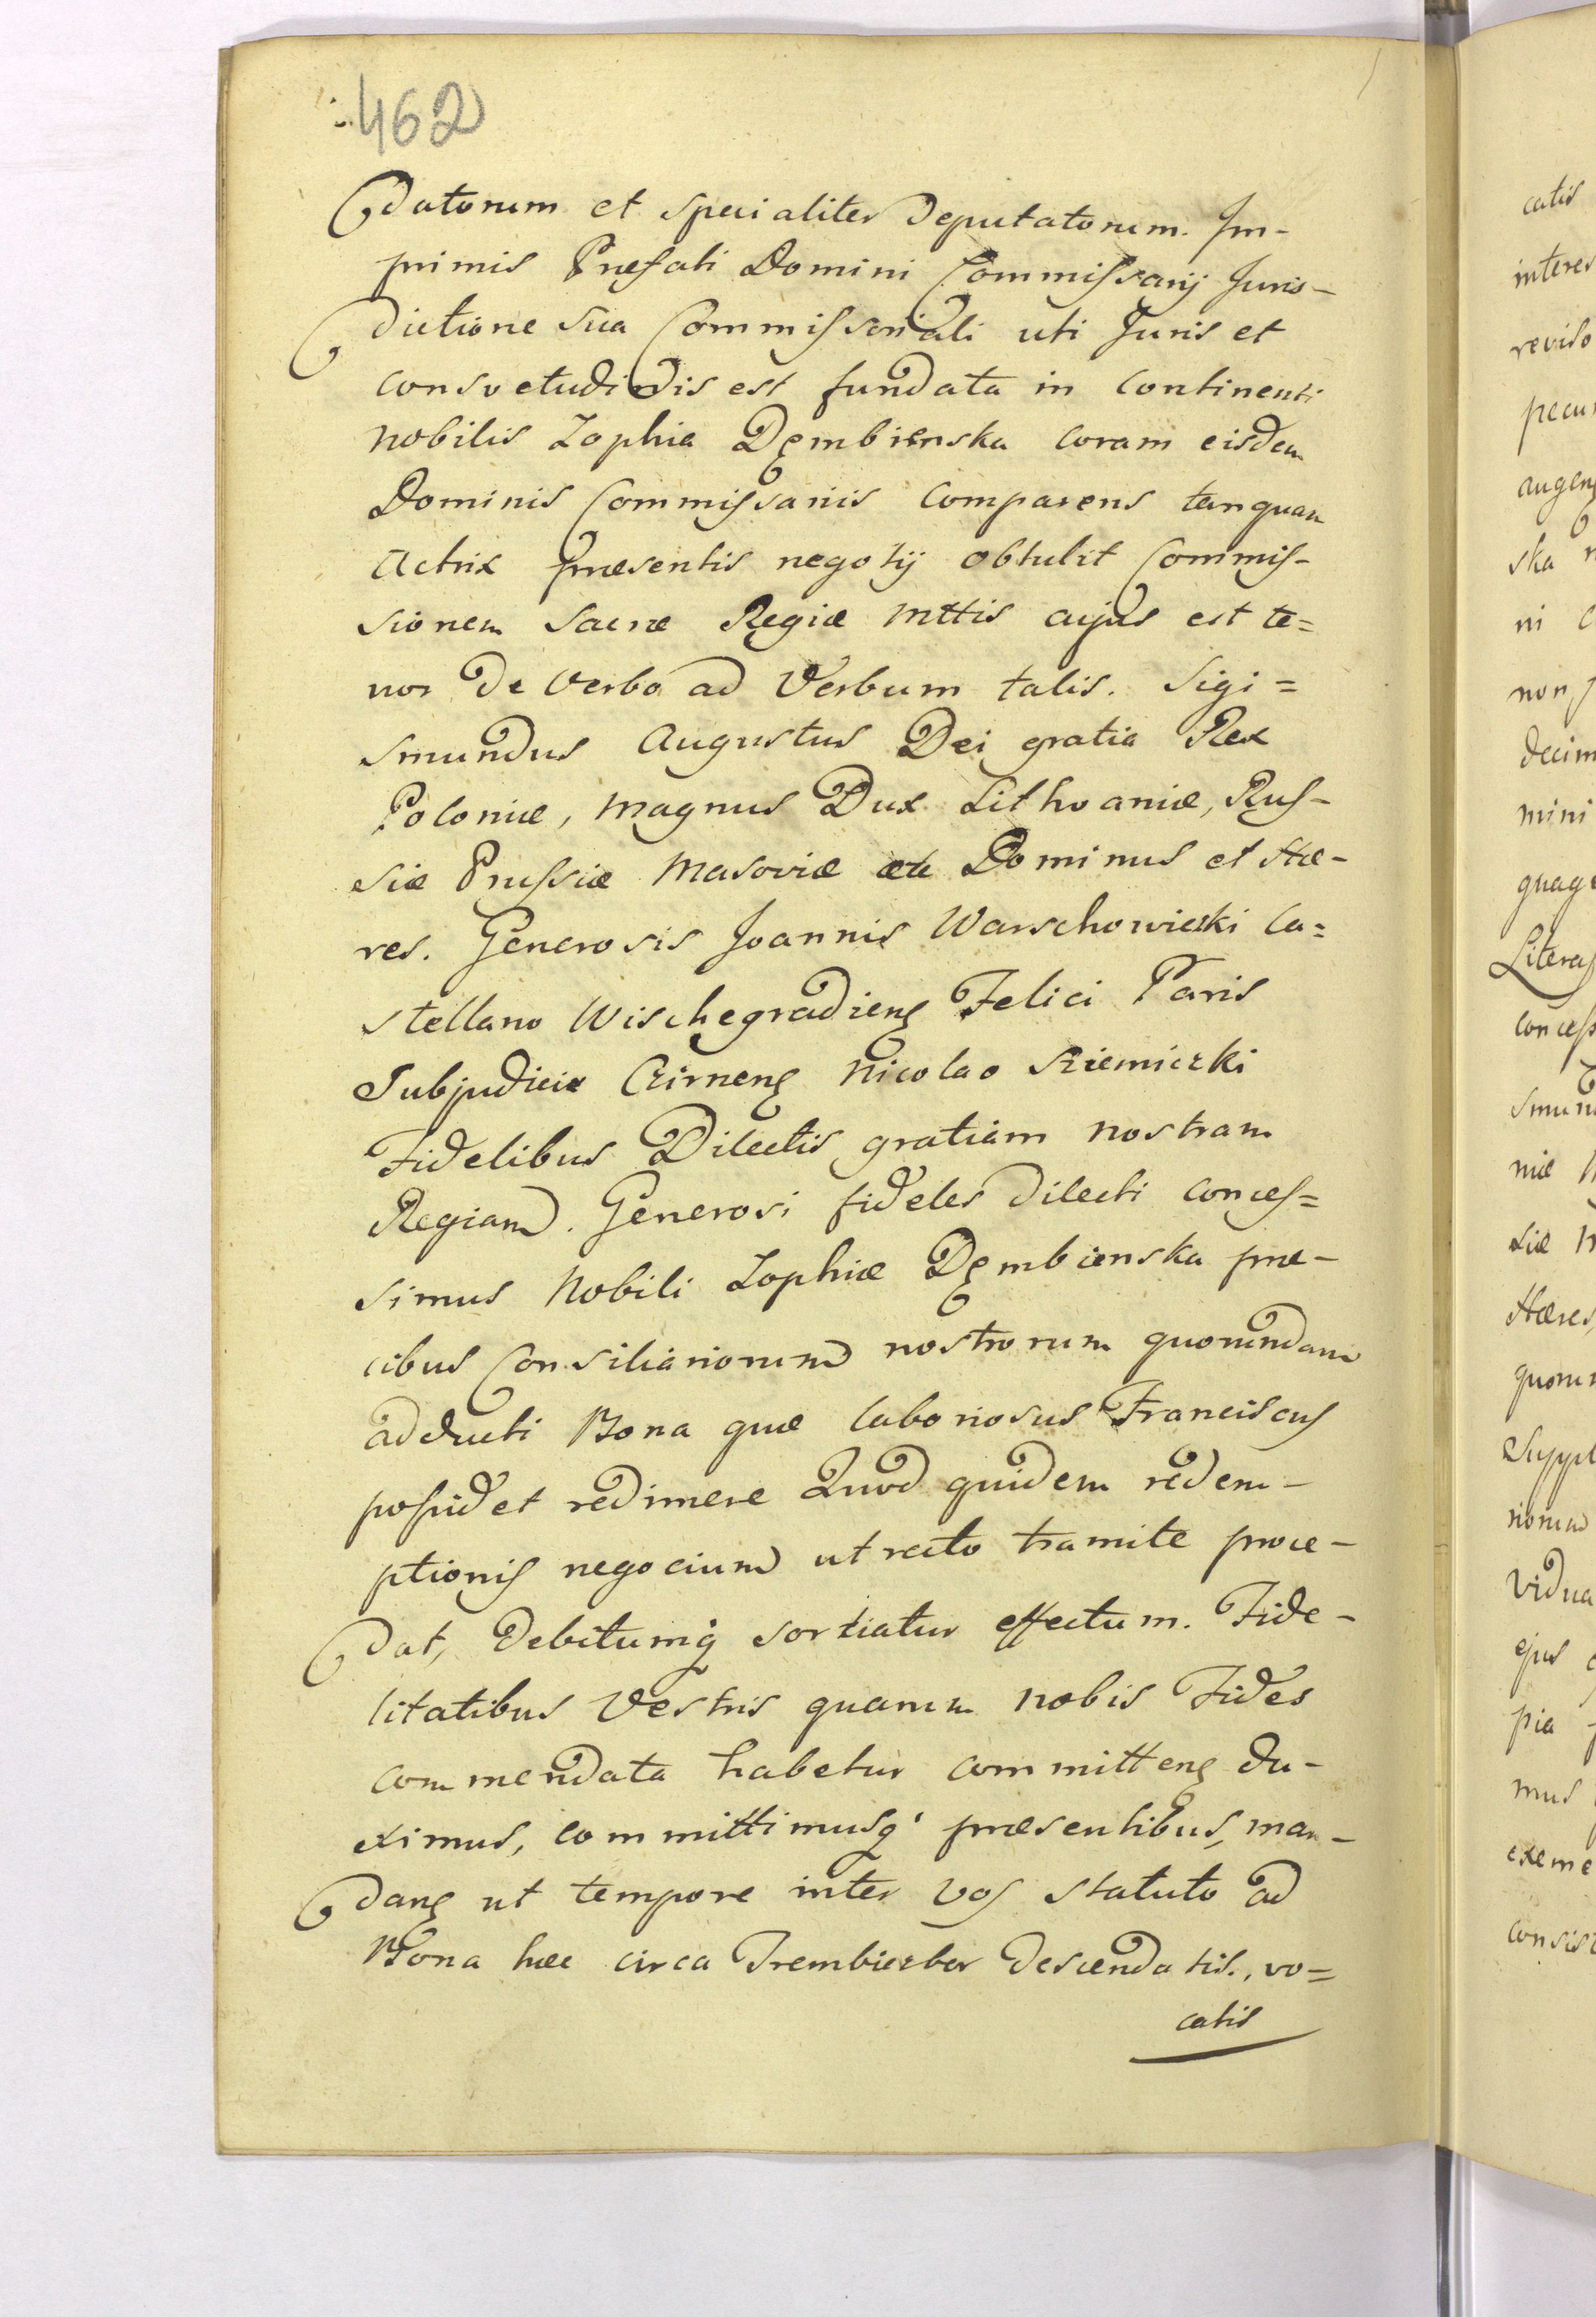 462
datorum et specialiter Deputatorum. Im-
primis Præfati Domini Commissarij Juris-
dictione sua Commissoriali uti Juris et
consvetudidis est fundata in continenti
nobilis Zophia Dęmbienska coram eisdem
Dominis Commissariis comparens tanquam
Actrix præsentis negotij obtulit Commis-
sionem Sacræ Regiæ Mttis cujus est te=
nor de verbo ad Verbum talis. Sigi=
smundus Augustus Dei gratia Rex
Poloniæ, Magnus Dux Lithvaniæ, Rus-
siæ Prussiæ Masoviæ etc Dominus et Hæ-
res. Generosis Joannis Warschowicki Ca=
stellano Wischegradieng Felici Paris
Subjudicie Czirneng Nicolao Kziemiczki
Fidelibus Dilectis gratiam nostram
Regiam. Generosi fideles dilecti conces=
simus Nobili Zophiæ Dęmbienska præ-
cibus Consiliariorum nostrorum quorundam
adducti Bona quæ laboriosus Franciscus
possidet redimere Quod quidem redem-
ptionis negocium ut recto tramite proce-
dat, debitumq́ sortiatur effectum. Fide-
litatibus Vestris quarum nobis Fides
commendata habetur committeng du-
ximus, committimusq́ præsentibus, man-
dang ut tempore inter vos statuto ad
Bona hæc circa Trembiezber descendatis., vo=
catis
catis
interes
reviso
pecun
augeng
ska
ni
non
decim
mini
quag
Literas
concess
smun
niæ
siæ
Hæres,
quoru
Suppl
riorum
Vidua
ejus
pia
mus
exeme
consis